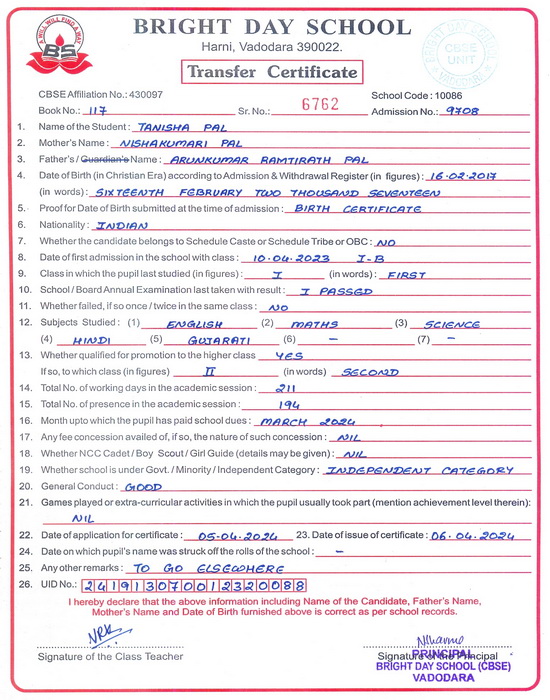 A WILL WILL FIND A WAY
BS
BRIGHT DAY SCHOOL
Harni, Vadodara 390022.
BRIGHT DAY SCHOOL
CBSE
UNIT
VADODARA
Transfer Certificate
CBSE Affiliation No.: 430097 School Code : 10086
Book No.: 117 Sr. No.: 6762 Admission No.: 9708
1. Name of the Student : TANISHA PAL
2. Mother's Name : NISHAKUMARI PAL
3. Father's / Guardian's Name : ARUNKUMAR RAMTIRATH PAL
4. Date of Birth (in Christian Era) according to Admission & Withdrawal Register (in figures) : 16-02-2017
(in words) : SIXTEENTH FEBRUARY TWO THOUSAND SEVENTEEN
5. Proof for Date of Birth submitted at the time of admission : BIRTH CERTIFICATE
6. Nationality : INDIAN
7. Whether the candidate belongs to Schedule Caste or Schedule Tribe or OBC : NO
8. Date of first admission in the school with class : 10-04-2023 I-B
9. Class in which the pupil last studied (in figures) : I (in words) : FIRST
10. School / Board Annual Examination last taken with result : I PASSED
11. Whether failed, if so once / twice in the same class : NO
12. Subjects Studied : (1) ENGLISH (2) MATHS (3) SCIENCE
(4) HINDI (5) GUJARATI (6) - (7) -
13. Whether qualified for promotion to the higher class YES
If so, to which class (in figures) II (in words) SECOND
14. Total No. of working days in the academic session : 211
15. Total No. of presence in the academic session : 194
16. Month upto which the pupil has paid school dues : MARCH 2024
17. Any fee concession availed of, if so, the nature of such concession : NIL
18. Whether NCC Cadet / Boy Scout / Girl Guide (details may be given) : NIL
19. Whether school is under Govt. / Minority / Independent Category : INDEPENDENT CATEGORY
20. General Conduct : GOOD
21. Games played or extra-curricular activities in which the pupil usually took part (mention achievement level therein):
NIL
22. Date of application for certificate : 05-04-2024 23. Date of issue of certificate : 06-04-2024
24. Date on which pupil's name was struck off the rolls of the school : -
25. Any other remarks : TO GO ELSEWHERE
26. UID No.: 241913070012320088
I hereby declare that the above information including Name of the Candidate, Father's Name,
Mother's Name and Date of Birth furnished above is correct as per school records.
Signature of the Class Teacher Signature of the Principal
PRINCIPAL
BRIGHT DAY SCHOOL (CBSE)
VADODARA